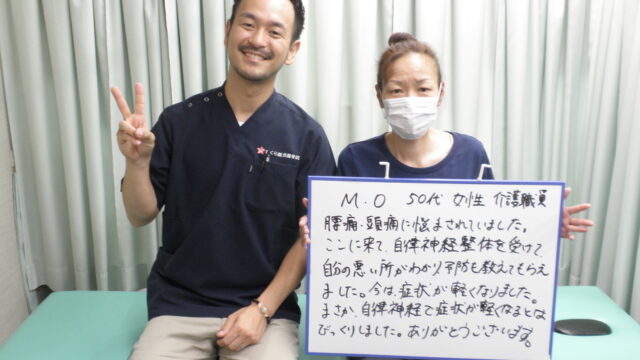 さくら総合整骨院
M.O 50代 女性 介護職員
腰痛・頭痛に悩まされていました。
ここに来て、自律神経整体を受けて、
自分の悪い所がわかり、予防も教えてもらえ
ました。今は、症状が軽くなりました。
まさか、自律神経で症状が軽くなるとは
びっくりしました。ありがとうございます。